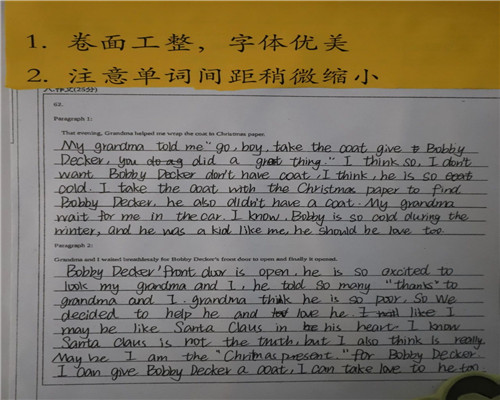 1. 卷面工整，字体优美
2. 注意单词间距稍微缩小
62.
Paragraph 1:
That evening, Grandma helped me wrap the coat in Christmas paper.
My grandma told me "go, boy, take the coat give to Bobby
Decker, you did a great thing." I think so, I don't
want Bobby Decker don't have coat, I think, he is so
cold. I take the coat with the Christmas paper to find
Bobby Decker, he also didn't have a coat. My grandma
wait for me in the car. I know, Bobby is so cold during the
winter, and he was a kid like me, he should be love too.
Paragraph 2:
Grandma and I waited breathlessly for Bobby Decker's front door to open and finally it opened.
Bobby Decker' front door is open, he is so excited to
look my grandma and I, he told so many "thanks" to
grandma and I. grandma think he is so poor, so we
decided to help he and love he. I like I
may be like Santa Claus in his heart. I know
Santa Claus is not the truth, but I also think is really
May be I am the "Chritmas present" for Bobby Decker.
I can give Bobby Decker a coat, I can take love to he too.